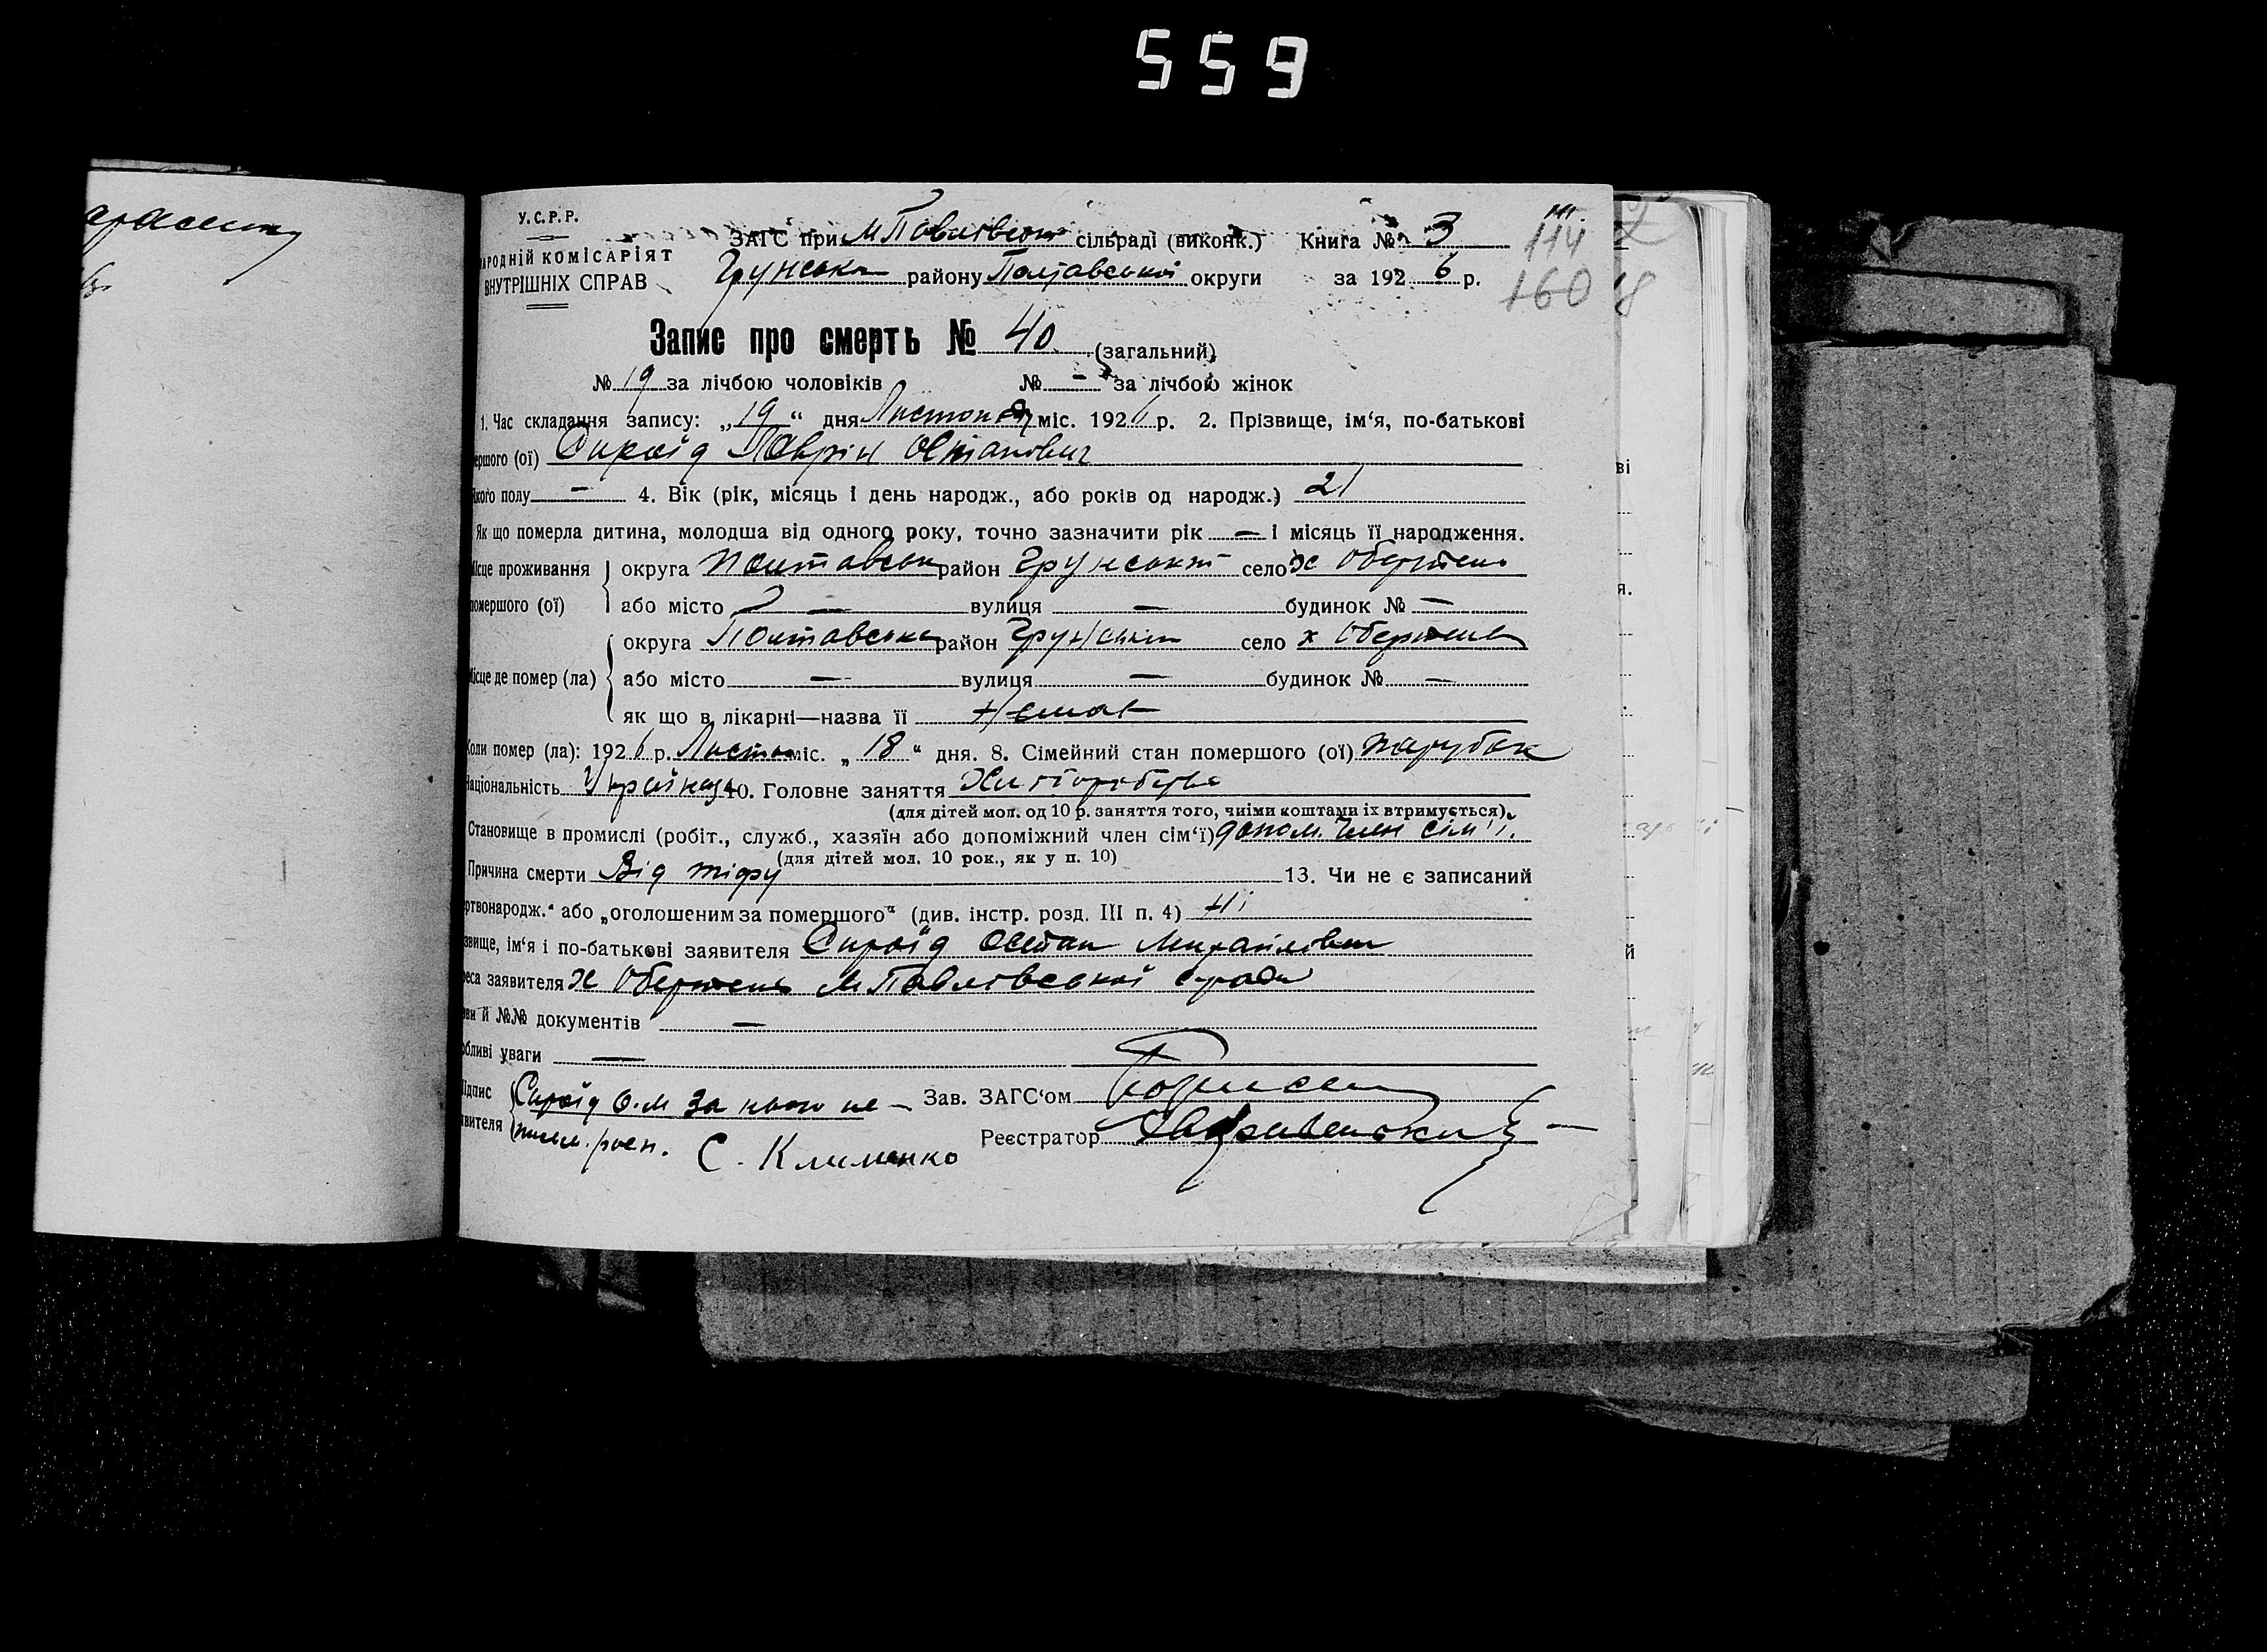 559
У.С.Р.Р.
НАРОДНІЙ КОМІСАРІЯТ
ВНУТРІШНІХ СПРАВ
ЗАГС при М Павлівськ сільраді (виконк.) Книга № 3
Грунська району Полтавської округи за 1926 р.
114
160
Запис про смерть № 40 (загальний)
№ 19 за лічбою чоловіків № — за лічбою жінок
1. Час складання запису: „19“ дня Листопад міс. 1926 р. 2. Прізвище, ім‘я, по-батькові
ершого (ої) Сироїд Лаврін Остапович
якого полу — 4. Вік (рік, місяць і день народж., або років од народж.) 21
Як що померла дитина, молодша від одного року, точно зазначити рік — і місяць її народження.
Місце проживання округа Полтавськ район Грунський село х Обертень
помершого (ої) або місто — вулиця — будинок № —
округа Полтавська район Грунський село х
Місце де помер (ла) або місто — вулиця — будинок № —
як що в лікарні—назва її Немає
Коли помер (ла): 1926 р. Листоп міс. „18“ дня. 8. Сімейний стан помершого (ої) парубок
Національність 10. Головне заняття Хліборобство
(для дітей мол. од 10 р. заняття того, чиїми коштами їх втримується)
Становище в промислі (робіт., служб., хазяїн або допоміжний член сім‘ї) допом. член сім'ї.
(для дітей мол. 10 рок., як у п. 10)
Причина смерти Від тифу 13. Чи не є записаний
ртвонародж.“ або „оголошеним за помершого“ (див. інстр. розд. III п. 4) Ні
звище, ім‘я і по-батькові заявителя Сироїд Остап Михайлович
реса заявителя х Обертень М Павлівської с ради
ви й №№ документів —
обливі уваги —
Підпис Сироїд О.М за нього не-
явителя писм. росп. С. Клименко
Зав. ЗАГС‘ом
Реєстратор